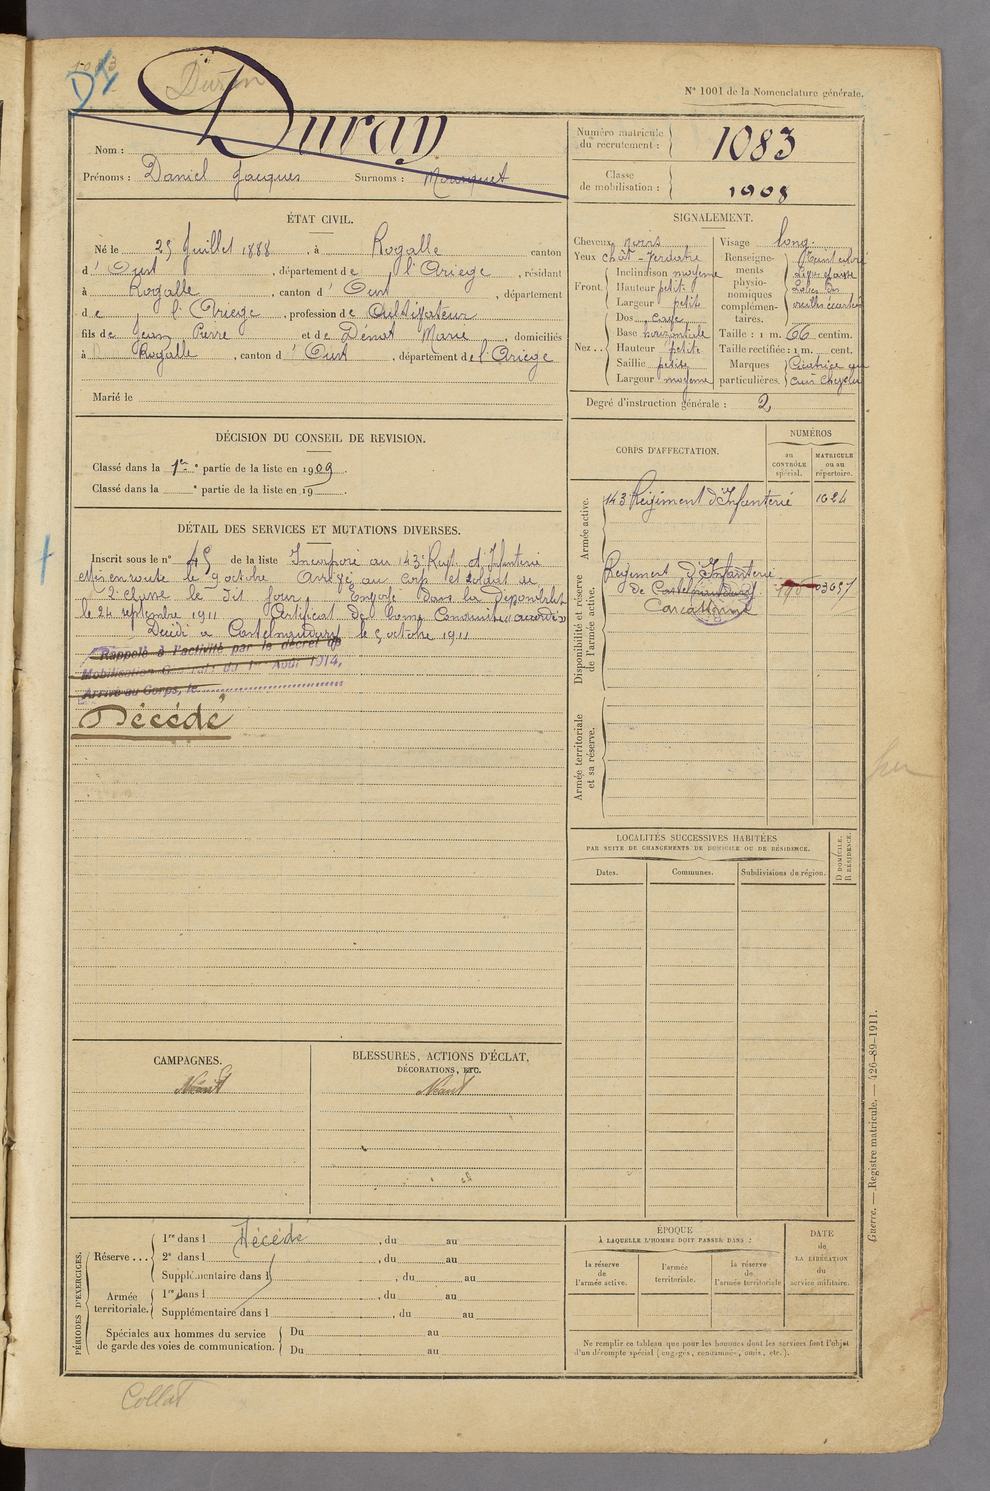 Duran
N° 1001 de la Nomenclature générale.
Nom : Duran
Prénoms : Daniel Jacques Surnoms : Mousquet
Numéro matricule du recrutement : 1083
Classe de mobilisation : 1908
ÉTAT CIVIL.
Né le 25 Juillet 1888, à Rogalle canton
d'Oust, département de l'Ariège, résidant
à Rogalle, canton d'Oust, département
de l'Ariège, profession de Cultivateur
fils de Jean Pierre et de Dénat Marie, domiciliés
à Rogalle, canton d'Oust, département de l'Ariège
Marié le
SIGNALEMENT.
Cheveux noirs
Yeux chât-verdâtre
Front. Inclinaison moyenne
Hauteur petite
Largeur petite
Nez.. Dos cave
Base horizontale
Hauteur petite
Saillie petite
Largeur moyenne
Visage long.
Renseignements physionomiques complémentaires.
Taille : 1 m. 66 centim.
Taille rectifiée : 1 m. cent.
Marques particulières. Cicatrice au cuir chevelu
Degré d'instruction générale : 2
DÉCISION DU CONSEIL DE REVISION.
Classé dans la 1re partie de la liste en 1909.
Classé dans la e partie de la liste en 19
CORPS D'AFFECTATION.
NUMÉROS
au CONTRÔLE spécial.
MATRICULE ou au répertoire.
Armée active.
143e Régiment d'Infanterie 1624
Disponibilité et réserve de l'armée active.
Régiment d'Infanterie
de Castelnaudary
Carcassonne
Armée territoriale et sa réserve.
DÉTAIL DES SERVICES ET MUTATIONS DIVERSES.
Inscrit sous le n° 45 de la liste Incorporé au 143e Regt d'Infanterie
Mis en route le 9 octobre Arrivé au Corps et soldat de
2e classe le dit jour, Envoyé dans la disponibilité
le 24 septembre 1911 Certificat de bonne Conduite accordé
Décédé à Castelnaudary le 5 octobre 1911
Rappelé à l'activité par le décret de
Mobilisation Générale du 1er Août 1914,
Arrivé au Corps, le
Décédé
LOCALITÉS SUCCESSIVES HABITÉES
PAR SUITE DE CHANGEMENTS DE DOMICILE OU DE RÉSIDENCE.
Dates.
Communes.
Subdivisions de région.
D DOMICILE.
R RÉSIDENCE.
CAMPAGNES.
Néant
BLESSURES, ACTIONS D'ÉCLAT,
DÉCORATIONS, ETC.
Néant
PÉRIODES D'EXERCICES.
Réserve... 1re dans l Décédé, du au
2e dans l, du au
Supplémentaire dans l, du au
Armée territoriale. 1re dans l, du au
Supplémentaire dans l, du au
Spéciales aux hommes du service de garde des voies de communication. Du au
Du au
ÉPOQUE
À LAQUELLE L'HOMME DOIT PASSER DANS :
la réserve de l'armée active.
l'armée territoriale.
la réserve de l'armée territoriale
DATE de LA LIBÉRATION du service militaire.
Ne remplir ce tableau que pour les hommes dont les services font l'objet
d'un décompte spécial (engagés, condamnés, omis, etc.).
Guerre. — Registre matricule. — 426-89-1911.
Collat